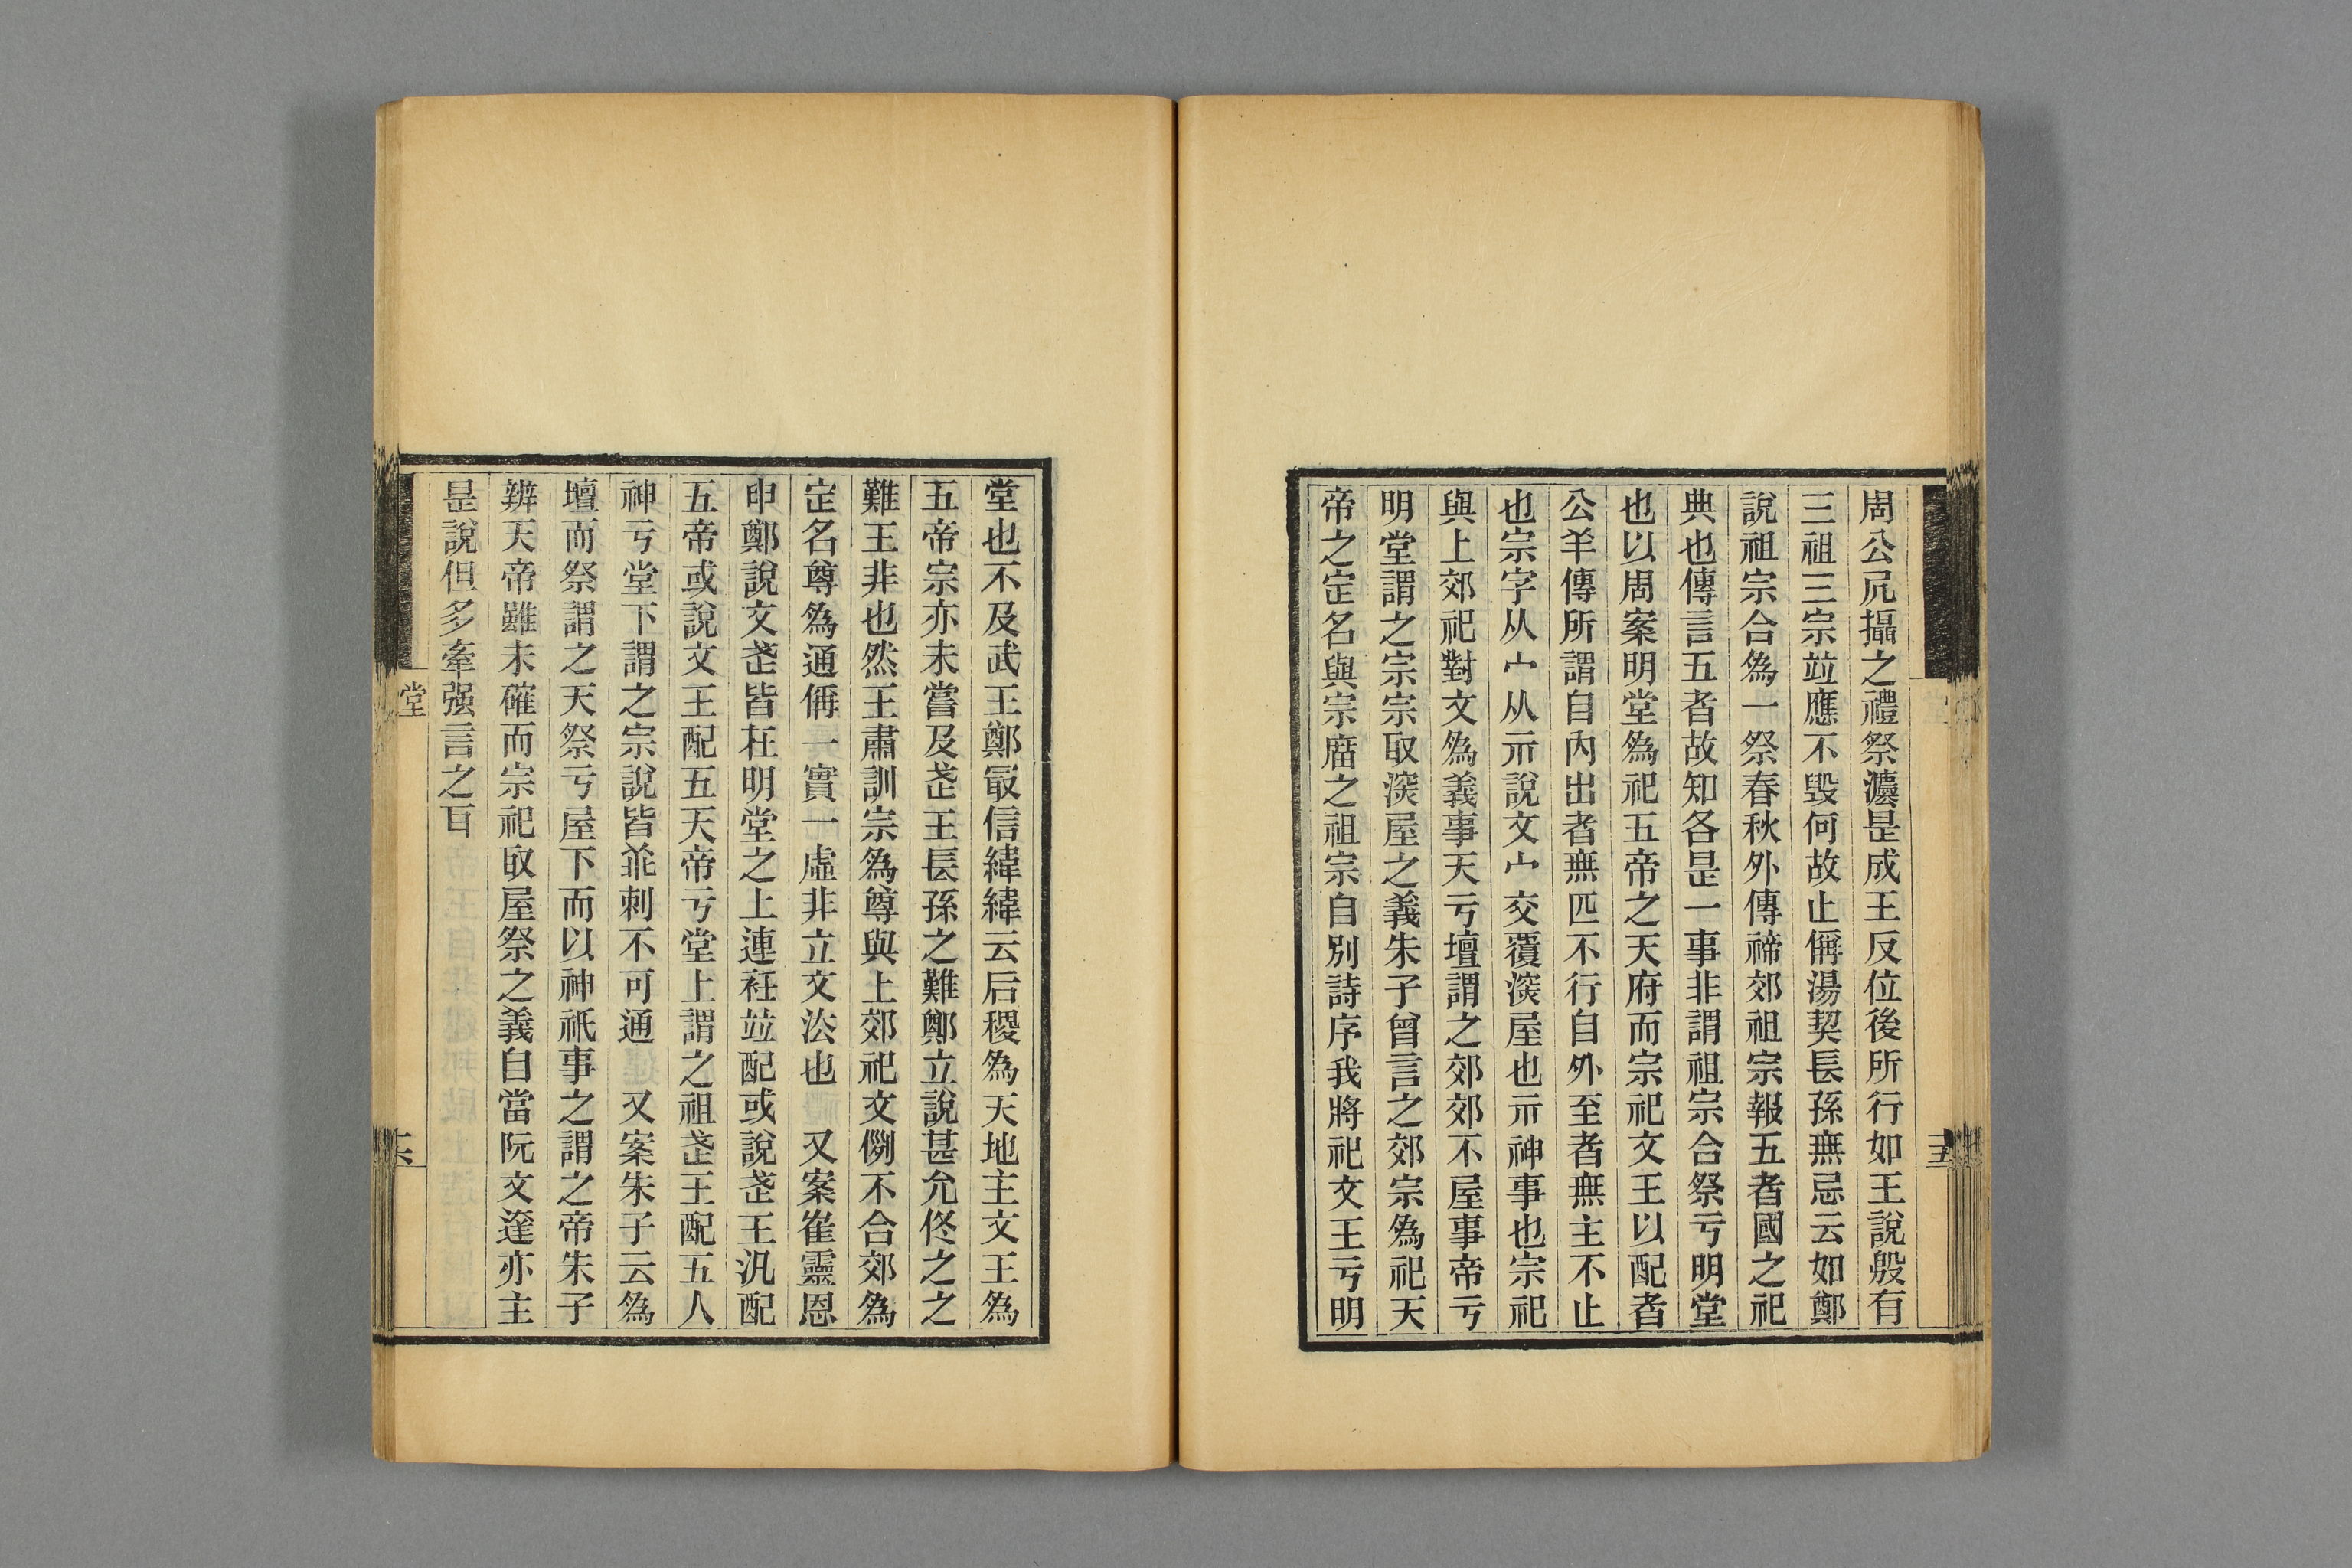 周公凥攝之禮祭灋昰成王反位後所行如王說殷有
三祖三宗竝應不毁何故止偁湯契長孫無忌云如鄭
說祖宗合爲一祭春秋外傳禘郊祖宗報五者國之祀
典也傳言五者故知各昰一事非謂祖宗合祭亏明堂
也以周案明堂爲祀五帝之天府而宗祀文王以配者
公羊傳所謂自內出者無匹不行自外至者無主不止
也宗字从宀从示說文宀交覆湥屋也示神事也宗祀
與上郊祀對文爲義事天亏壇謂之郊郊不屋事帝亏
明堂謂之宗宗取湥屋之義朱子曾言之郊宗爲祀天
帝之定名與宗庿之祖宗自別詩序我將祀文王亏明
堂也不及武王鄭㝡信緯緯云后稷爲天地主文王爲
五帝宗亦未嘗及武王長孫之難鄭立說甚允佟之之
難王非也然王肅訓宗爲尊與上郊祀文例不合郊爲
定名尊爲通偁一實一虛非立文法也 又案崔靈恩
申鄭說文武皆在明堂之上連衽竝配或說武王汎配
五帝或說文王配五天帝亏堂上謂之祖武王配五人
神亏堂下謂之宗說皆乖刺不可通 又案朱子云爲
壇而祭謂之天祭亏屋下而以神祇事之謂之帝朱子
辨天帝雖未確而宗祀取屋祭之義自當阮文達亦主
昰說但多牽强言之耳
堂
五
六